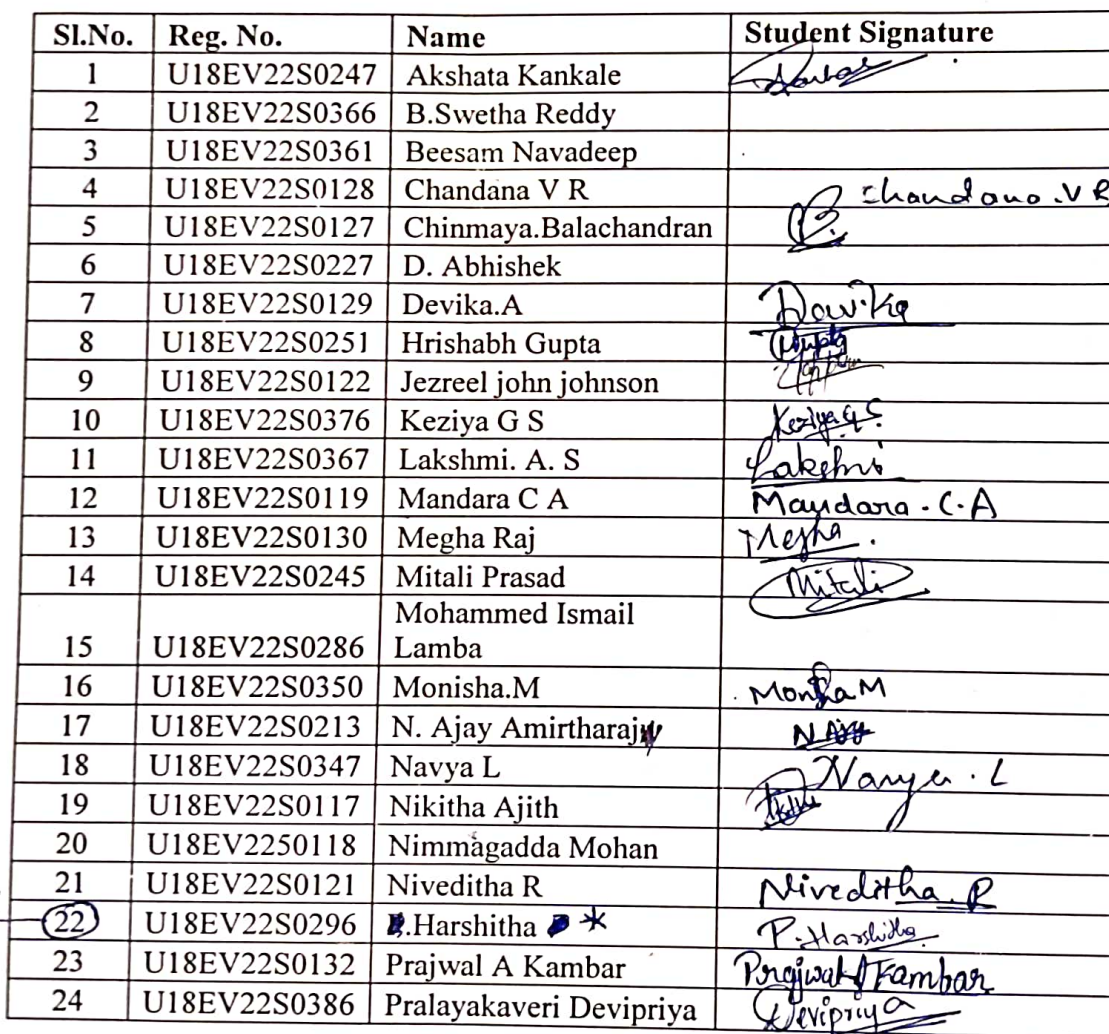 Sl.No. Reg. No. Name Student Signature
1 U18EV22S0247 Akshata Kankale
2 U18EV22S0366 B.Swetha Reddy
3 U18EV22S0361 Beesam Navadeep
4 U18EV22S0128 Chandana V R Chandana.V R
5 U18EV22S0127 Chinmaya.Balachandran
6 U18EV22S0227 D. Abhishek
7 U18EV22S0129 Devika.A Devika
8 U18EV22S0251 Hrishabh Gupta Gupta
9 U18EV22S0122 Jezreel john johnson
10 U18EV22S0376 Keziya G S Keziya G S
11 U18EV22S0367 Lakshmi. A. S Lakshmi
12 U18EV22S0119 Mandara C A Mandara.C.A
13 U18EV22S0130 Megha Raj Megha.
14 U18EV22S0245 Mitali Prasad Mitali
Mohammed Ismail
15 U18EV22S0286 Lamba
16 U18EV22S0350 Monisha.M Monisha M
17 U18EV22S0213 N. Ajay Amirtharaj N Ajay
18 U18EV22S0347 Navya L Navya.L
19 U18EV22S0117 Nikitha Ajith
20 U18EV2250118 Nimmagadda Mohan
21 U18EV22S0121 Niveditha R Niveditha.R
22 U18EV22S0296 .Harshitha * P.Harshitha
23 U18EV22S0132 Prajwal A Kambar Prajwal A Kambar
24 U18EV22S0386 Pralayakaveri Devipriya Devipriya